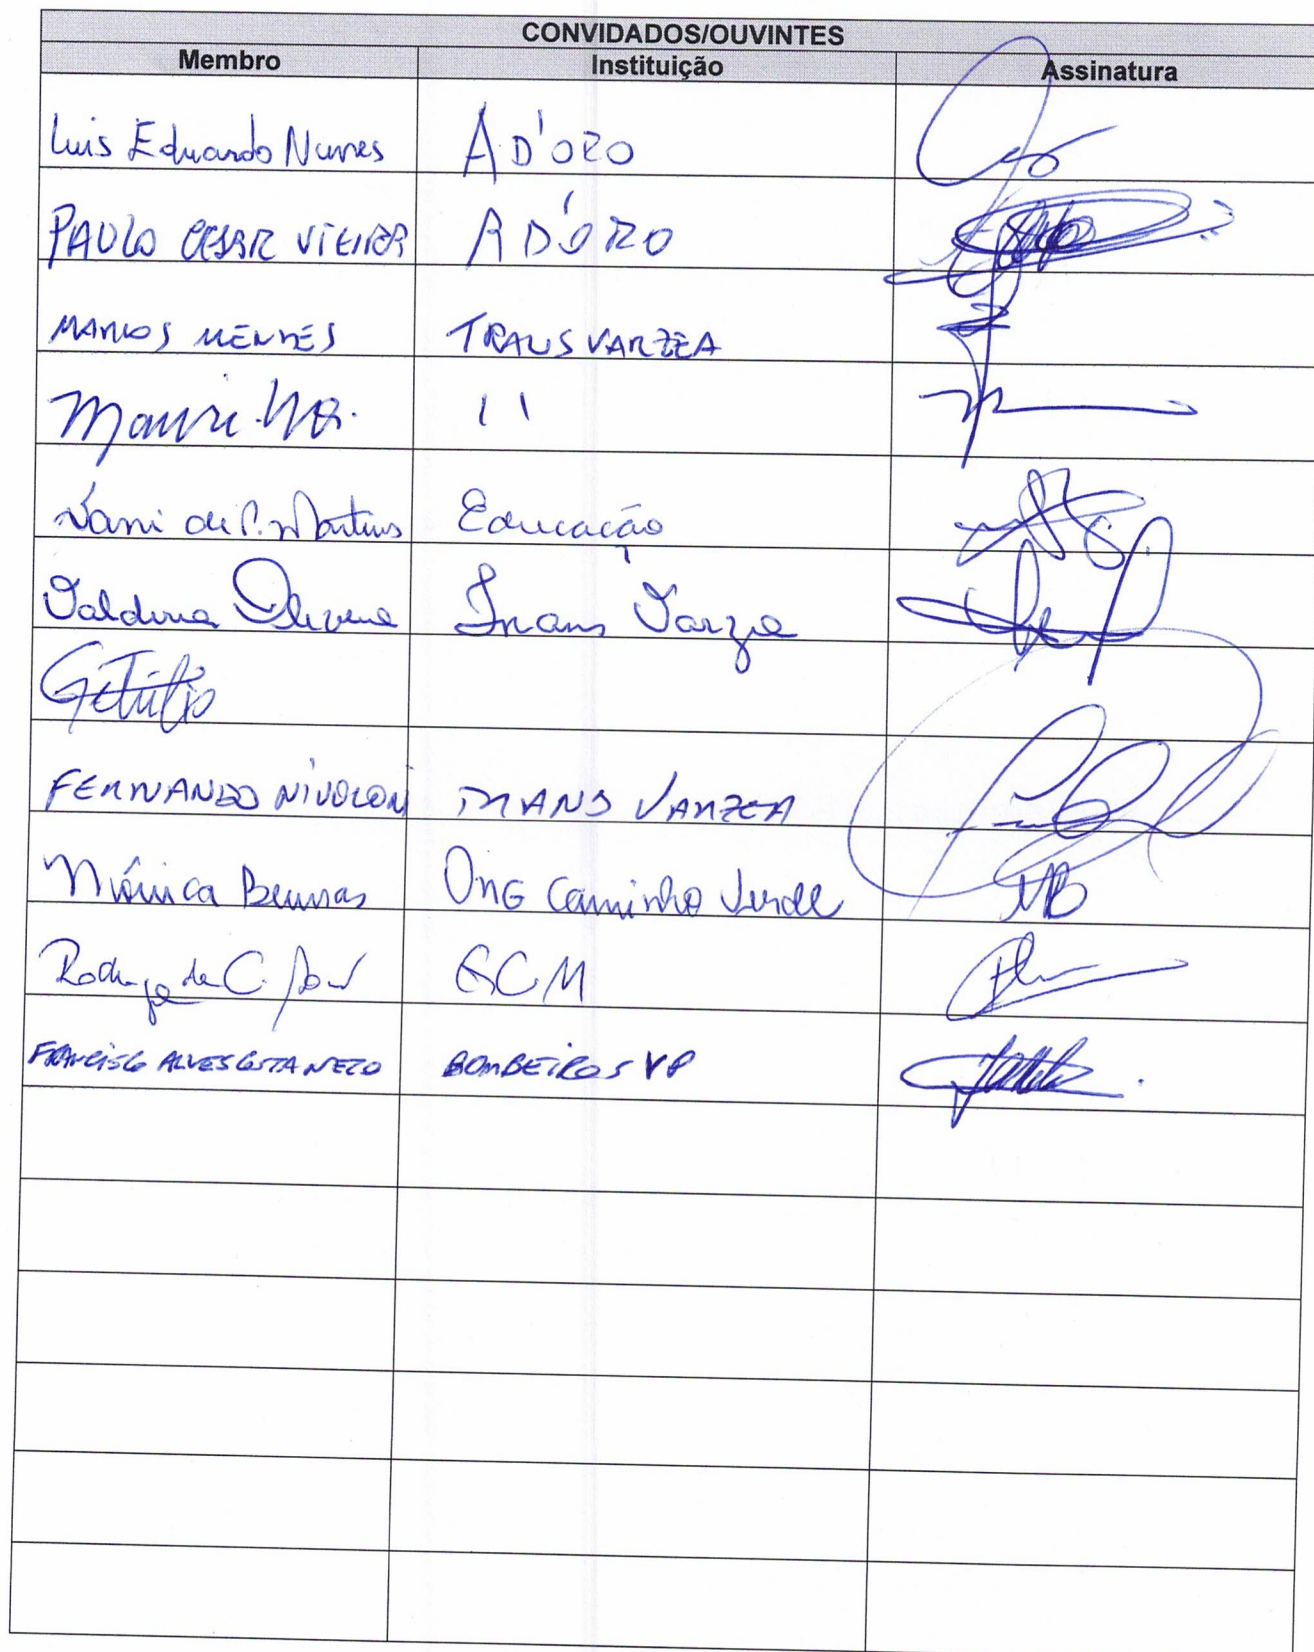 CONVIDADOS/OUVINTES
Membro Instituição Assinatura
Luis Eduardo Nunes AD'ORO
PAULO CESAR VIEIRA AD'ORO
MARCOS MENDES TRANSVARZEA
11
de P. Martins Educação
Oliveira Trans Varzea
Getúlio
FERNANDO NIVOLONI TRANS VARZEA
Mônica ONG Caminho Verde
Rodrigo de C. GCM
FRANCISCO ALVES COSTA NETO BOMBEIROS VP
MB